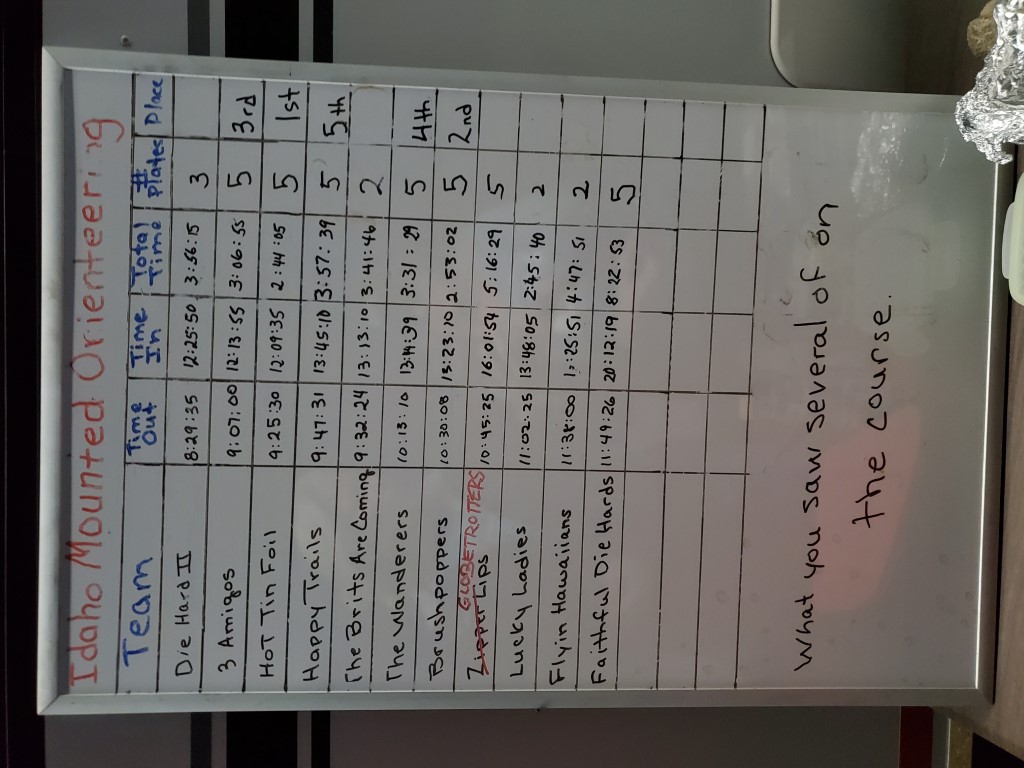 Idaho Mounted Orienteering
Team Time Out Time In Total Time # Plates Place
Die Hard II 8:29:35 12:25:50 3:56:15 3
3 Amigos 9:07:00 12:13:55 3:06:55 5 3rd
HoT Tin Foil 9:25:30 12:09:35 2:44:05 5 1st
Happy Trails 9:47:31 13:45:10 3:57:39 5 5th
The Brits Are Coming 9:32:24 13:13:10 3:41:46 2
The Wanderers 10:13:10 3:31:29 5 4th
Brushpoppers 10:30:08 13:23:10 2:53:02 5 2nd
GLOBETROTTERS
Zipper Lips 10:45:25 16:01:54 5:16:29 5
Lucky Ladies 11:02:25 13:48:05 2:45:40 2
Flyin Hawaiians 11:38:00 4:47:51 2
Faithful Die Hards 11:49:26 20:12:19 8:22:53 5
What you saw several of on
the course.